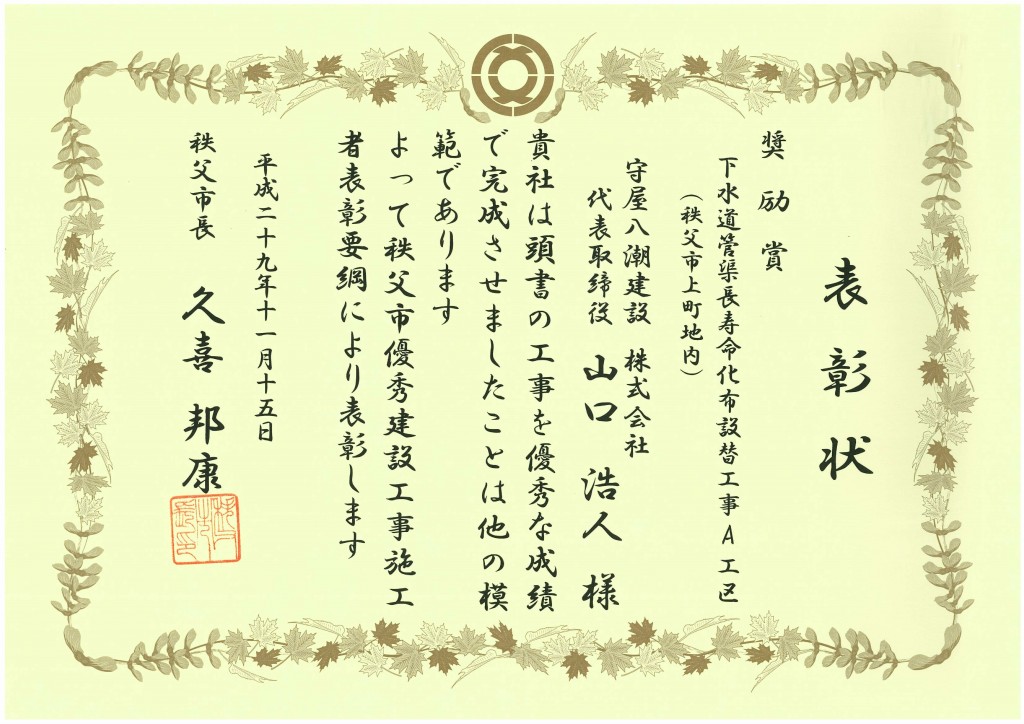 表彰状
奨励賞
下水道管渠長寿命化布設替工事A工区
（秩父市上町地内）
守屋八潮建設 株式会社
代表取締役 山口 浩人 様
貴社は頭書の工事を優秀な成績
で完成させましたことは他の模
範であります
よって秩父市優秀建設工事施工
者表彰要綱により表彰します
平成二十九年十一月十五日
秩父市長 久喜 邦康
秩父市長印